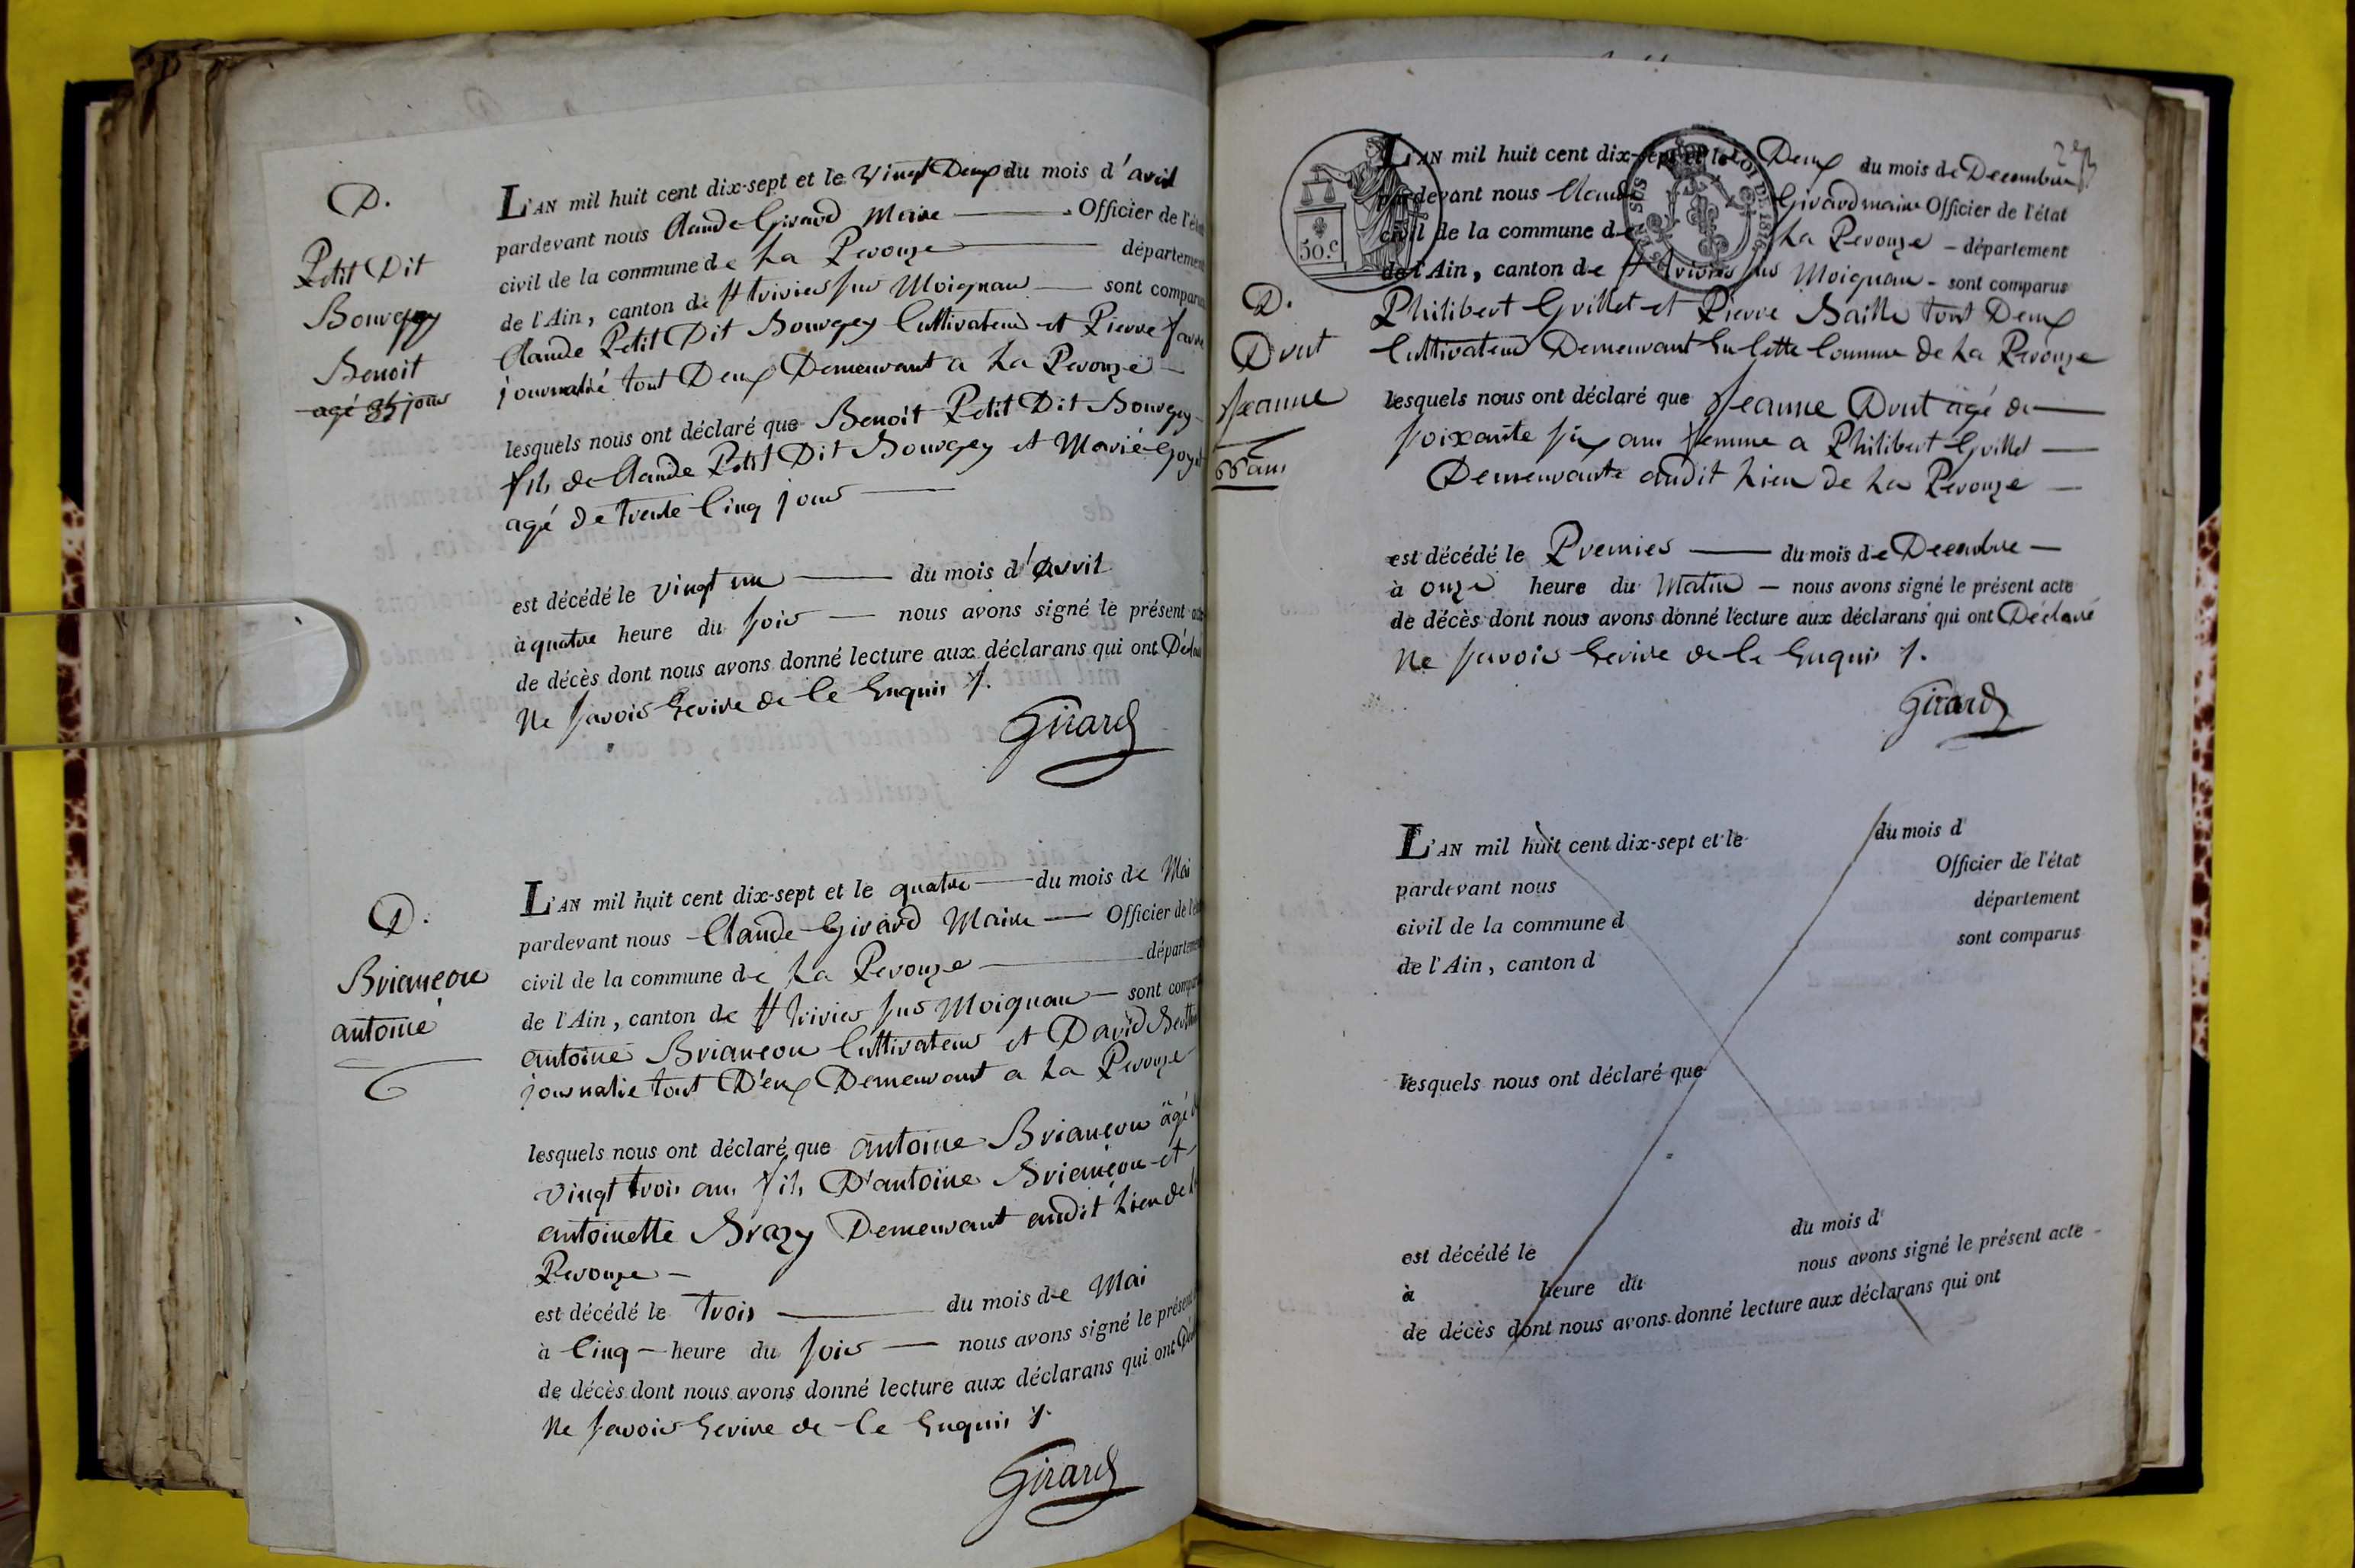 D.
Petit Dit
Bouvegey
Benoit
agé 35 jour
L'AN mil huit cent dix-sept et le vingt Deux du mois d'avril
pardevant nous Claude Girard Maire Officier de l'état
civil de la commune de La Perouze département
de l'Ain, canton de St trivier sur Moignan sont comparus
Claude Petit Dit Bouvegey Cultivateur et Pierre favre
journalié tout Deux Demeurant a La Perouze
lesquels nous ont déclaré que Benoit Petit Dit Bouvegey
fils de Claude Petit Dit Bouvegey et Marie Goyet
agé de trente Cinq jour
est décédé le vingt un du mois d'avril
à quatre heure du soir nous avons signé le présent acte
de décès dont nous avons donné lecture aux déclarans qui ont Déclaré
Ne savoir Ecrire de Ce Enquis
Girard
D.
Briancon
antoine
L'AN mil huit cent dix-sept et le quatre du mois de Mai
pardevant nous Claude Girard Maire Officier de l'état
civil de la commune de La Perouze département
de l'Ain, canton de St trivier sur Moignan sont comparus
antoine Briancon Cultivateur et David
journalie tout D'eux Demeurant a La Perouze
lesquels nous ont déclaré que antoine Briancon agé
vingt trois ans fils D'antoine Briancon et
antoinette Brazy Demeurant audit Lieu de
Perouze
est décédé le trois du mois de Mai
à Cinq heure du soir nous avons signé le présent
de décès dont nous avons donné lecture aux déclarans qui ont
Ne savoir Ecrire de Ce Enquis
Girard
50.C
LOI DE 1816
L'AN mil huit cent dix-sept et le Deux du mois de Decembre
pardevant nous Claude Girard maire Officier de l'état
civil de la commune de La Perouze département
de l'Ain, canton de St trivier sur Moignan sont comparus
D.
Drut
Jeanne
Philibert Grillet et Pierre Baille tout Deux
Cultivateur Demeurant En Cette Commune de La Perouze
lesquels nous ont déclaré que Jeanne Drut agé de
soixante six ans femme a Philibert Grillet
Demeurante audit Lieu de La Perouze
est décédé le Premier du mois de Decembre
à onze heure du Matin nous avons signé le présent acte
de décès dont nous avons donné lecture aux déclarans qui ont Déclaré
Ne savoir Ecrire de Ce Enquis
Girard
L'AN mil huit cent dix-sept et le du mois d
pardevant nous Officier de l'état
civil de la commune d département
de l'Ain, canton d sont comparus
lesquels nous ont déclaré que
est décédé le du mois d
à heure du nous avons signé le présent acte
de décès dont nous avons donné lecture aux déclarans qui ont